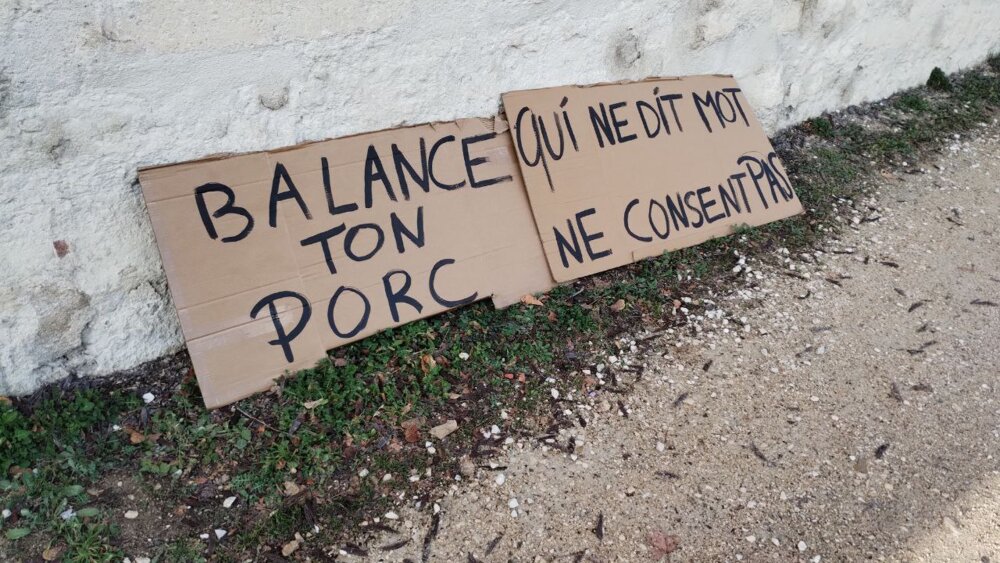 BALANCE
TON
PORC
QUI NE DIT MOT
NE CONSENT PAS